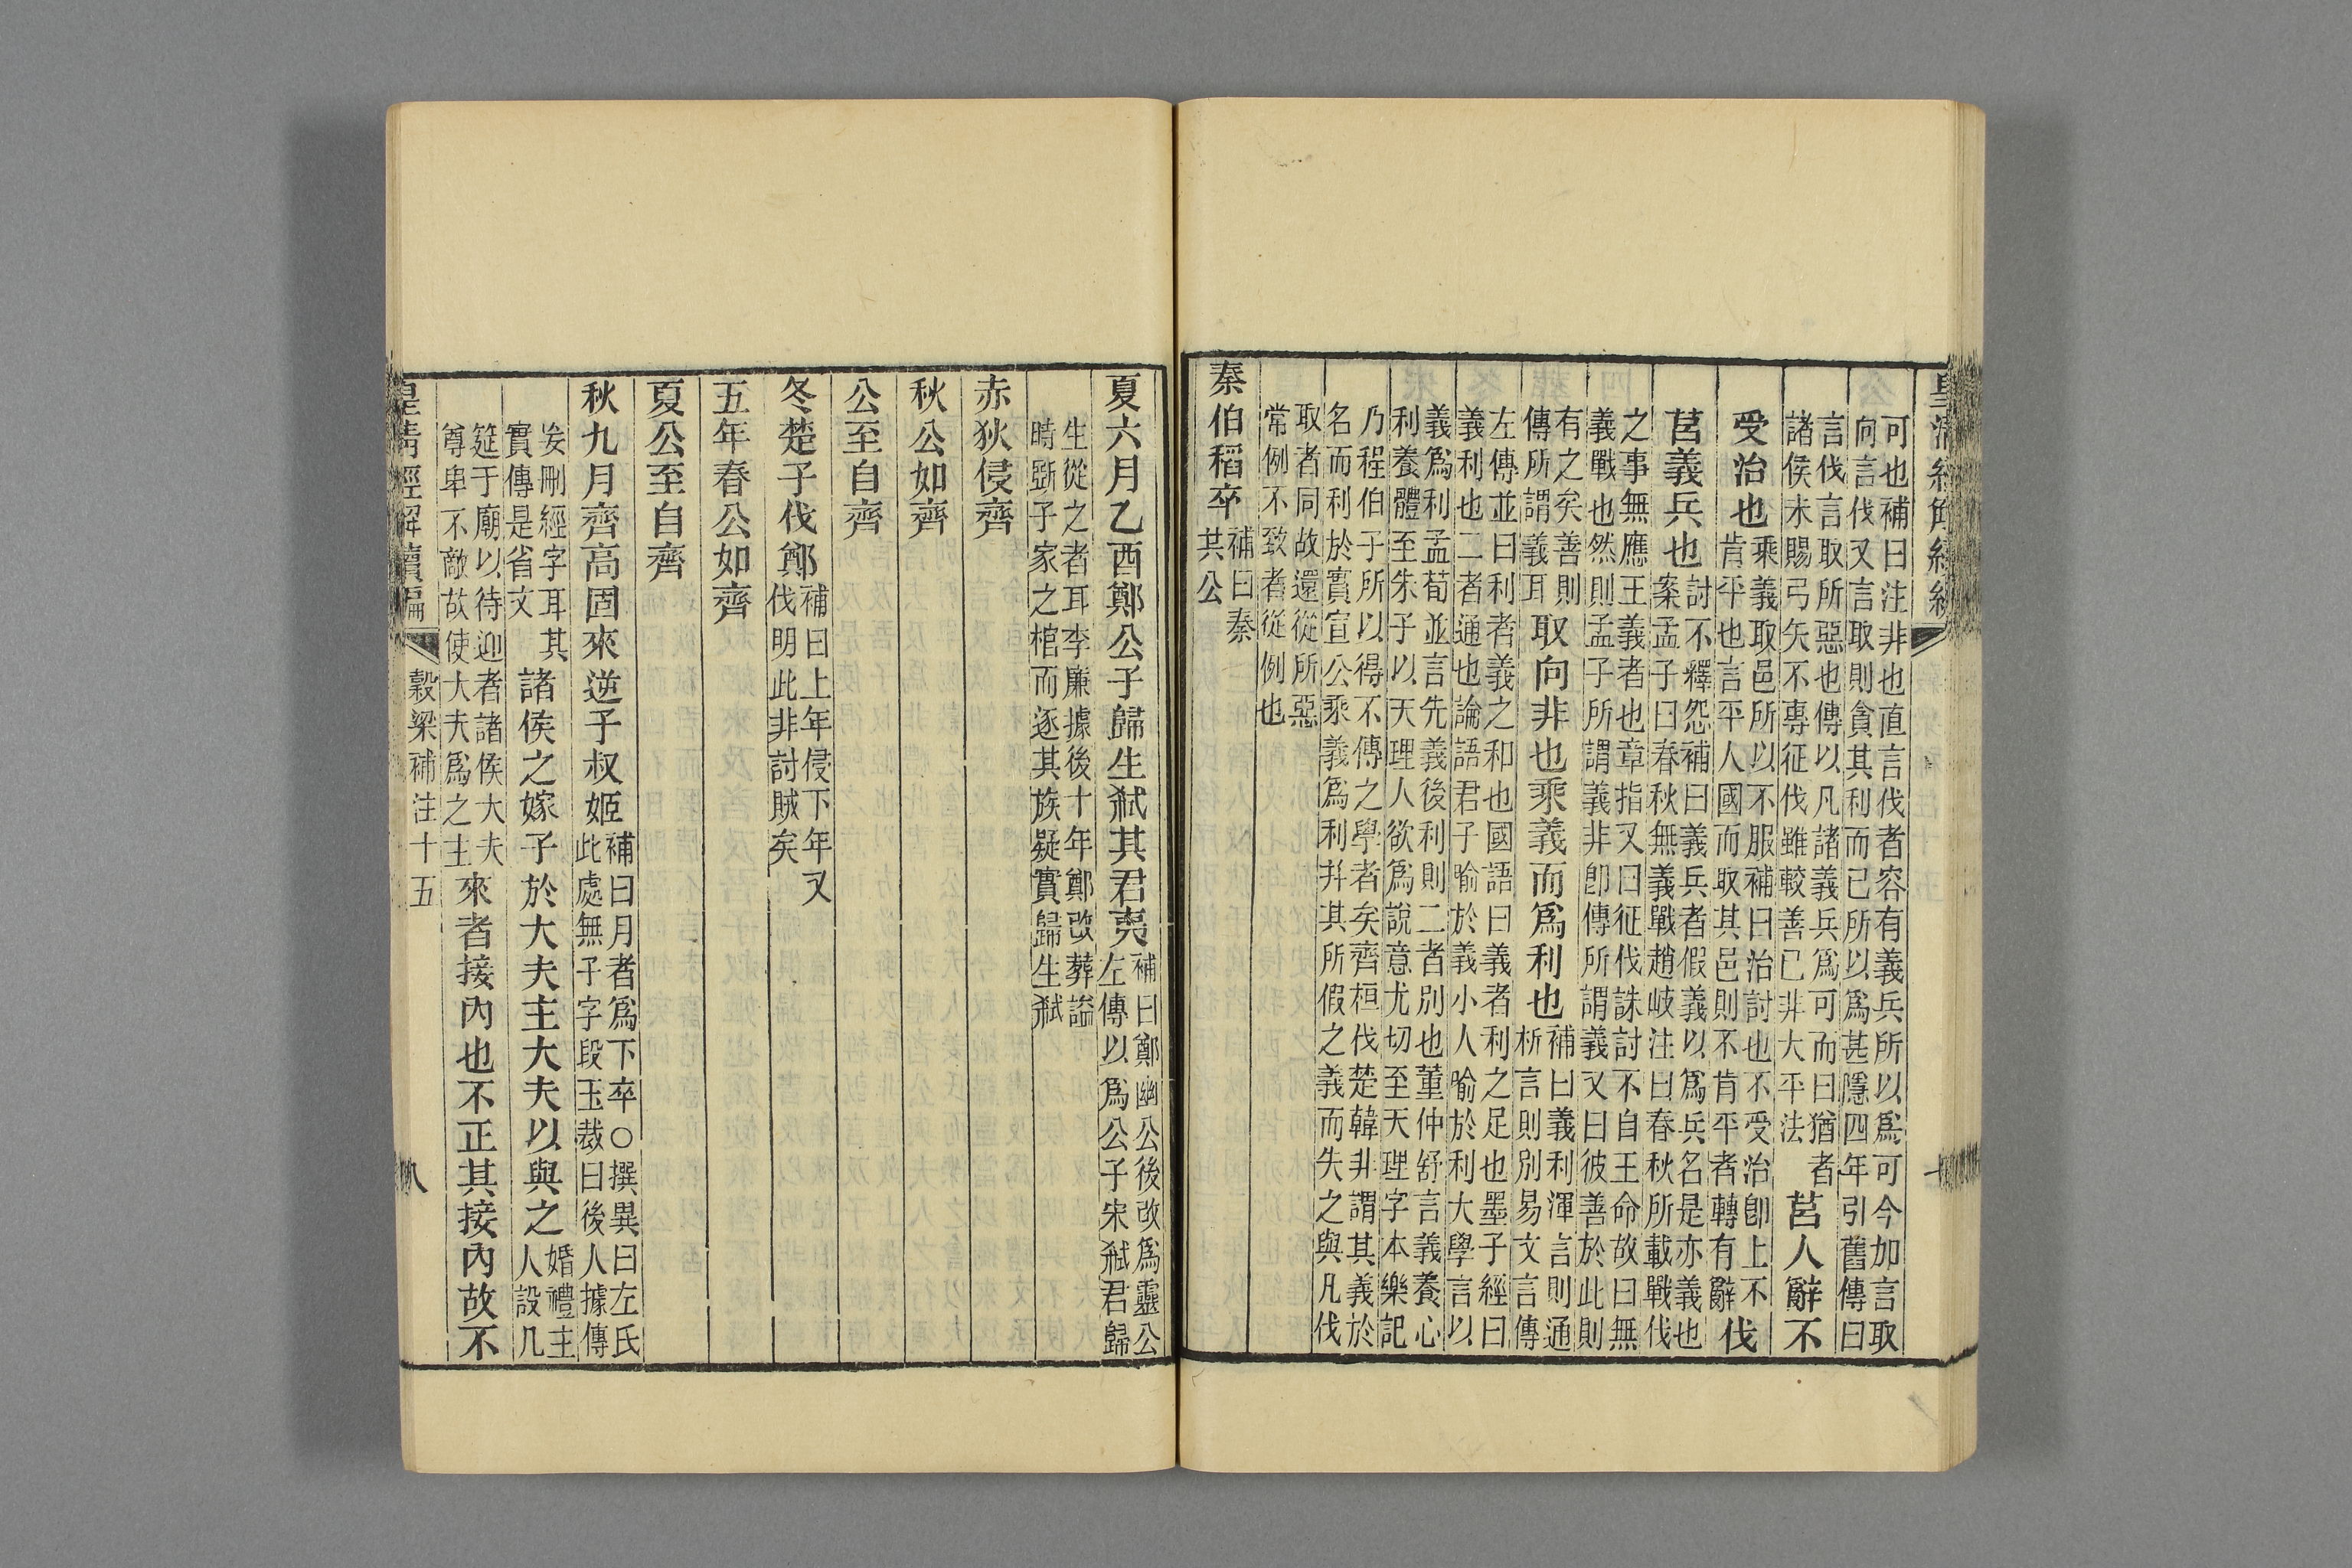 可也補曰注非也直言伐者容有義兵所以爲可今加言取
向言伐又言取則貪其利而已所以爲甚隱四年引舊傳曰
言伐言取所惡也傳以凡諸義兵爲可而曰猶者
諸侯未賜弓矢不專征伐雖較善已非大平法
莒人辭不
受治也
乘義取邑所以不服補曰治討也不受治卽上不
肯平也言平人國而取其邑則不肯平者轉有辭
伐
莒義兵也
討不釋怨補曰義兵者假義以爲兵名是亦義也
案孟子曰春秋無義戰趙岐注曰春秋所載戰伐
之事無應王義者也章指又曰征伐誅討不自王命故曰無
義戰也然則孟子所謂義非卽傳所謂義又曰彼善於此則
有之矣善則
傳所謂義耳
取向非也乘義而爲利也
補曰義利渾言則通
析言則別易文言傳
左傳並曰利者義之和也國語曰義者利之足也墨子經曰
義利也二者通也論語君子喻於義小人喻於利大學言以
義爲利孟荀並言先義後利則二者別也董仲舒言義養心
利養體至朱子以天理人欲爲說意尤切至天理字本樂記
乃程伯子所以得不傳之學者矣齊桓伐楚韓非謂其義於
名而利於實宣公乘義爲利并其所假之義而失之與凡伐
取者同故還從所惡
常例不致者從例也
秦伯稻卒
補曰秦
共公
夏六月乙酉鄭公子歸生弒其君夷
補曰鄭幽公後改爲靈公
左傳以爲公子宋弒君歸
生從之者耳李廉據後十年鄭改葬謚
時斲子家之棺而逐其族疑實歸生弒
赤狄侵齊
秋公如齊
公至自齊
冬楚子伐鄭
補曰上年侵下年又
伐明此非討賊矣
五年春公如齊
夏公至自齊
秋九月齊高固來逆子叔姬
補曰月者爲下卒○撰異曰左氏
此處無子字段玉裁曰後人據傳
妄刪經字耳其
實傳是省文
諸侯之嫁子於大夫主大夫以與之
婚禮主
人設几
筵于廟以待迎者諸侯大夫
尊卑不敵故使大夫爲之主
來者接內也不正其接內故不
皇清經解續編
穀梁補注十五
八